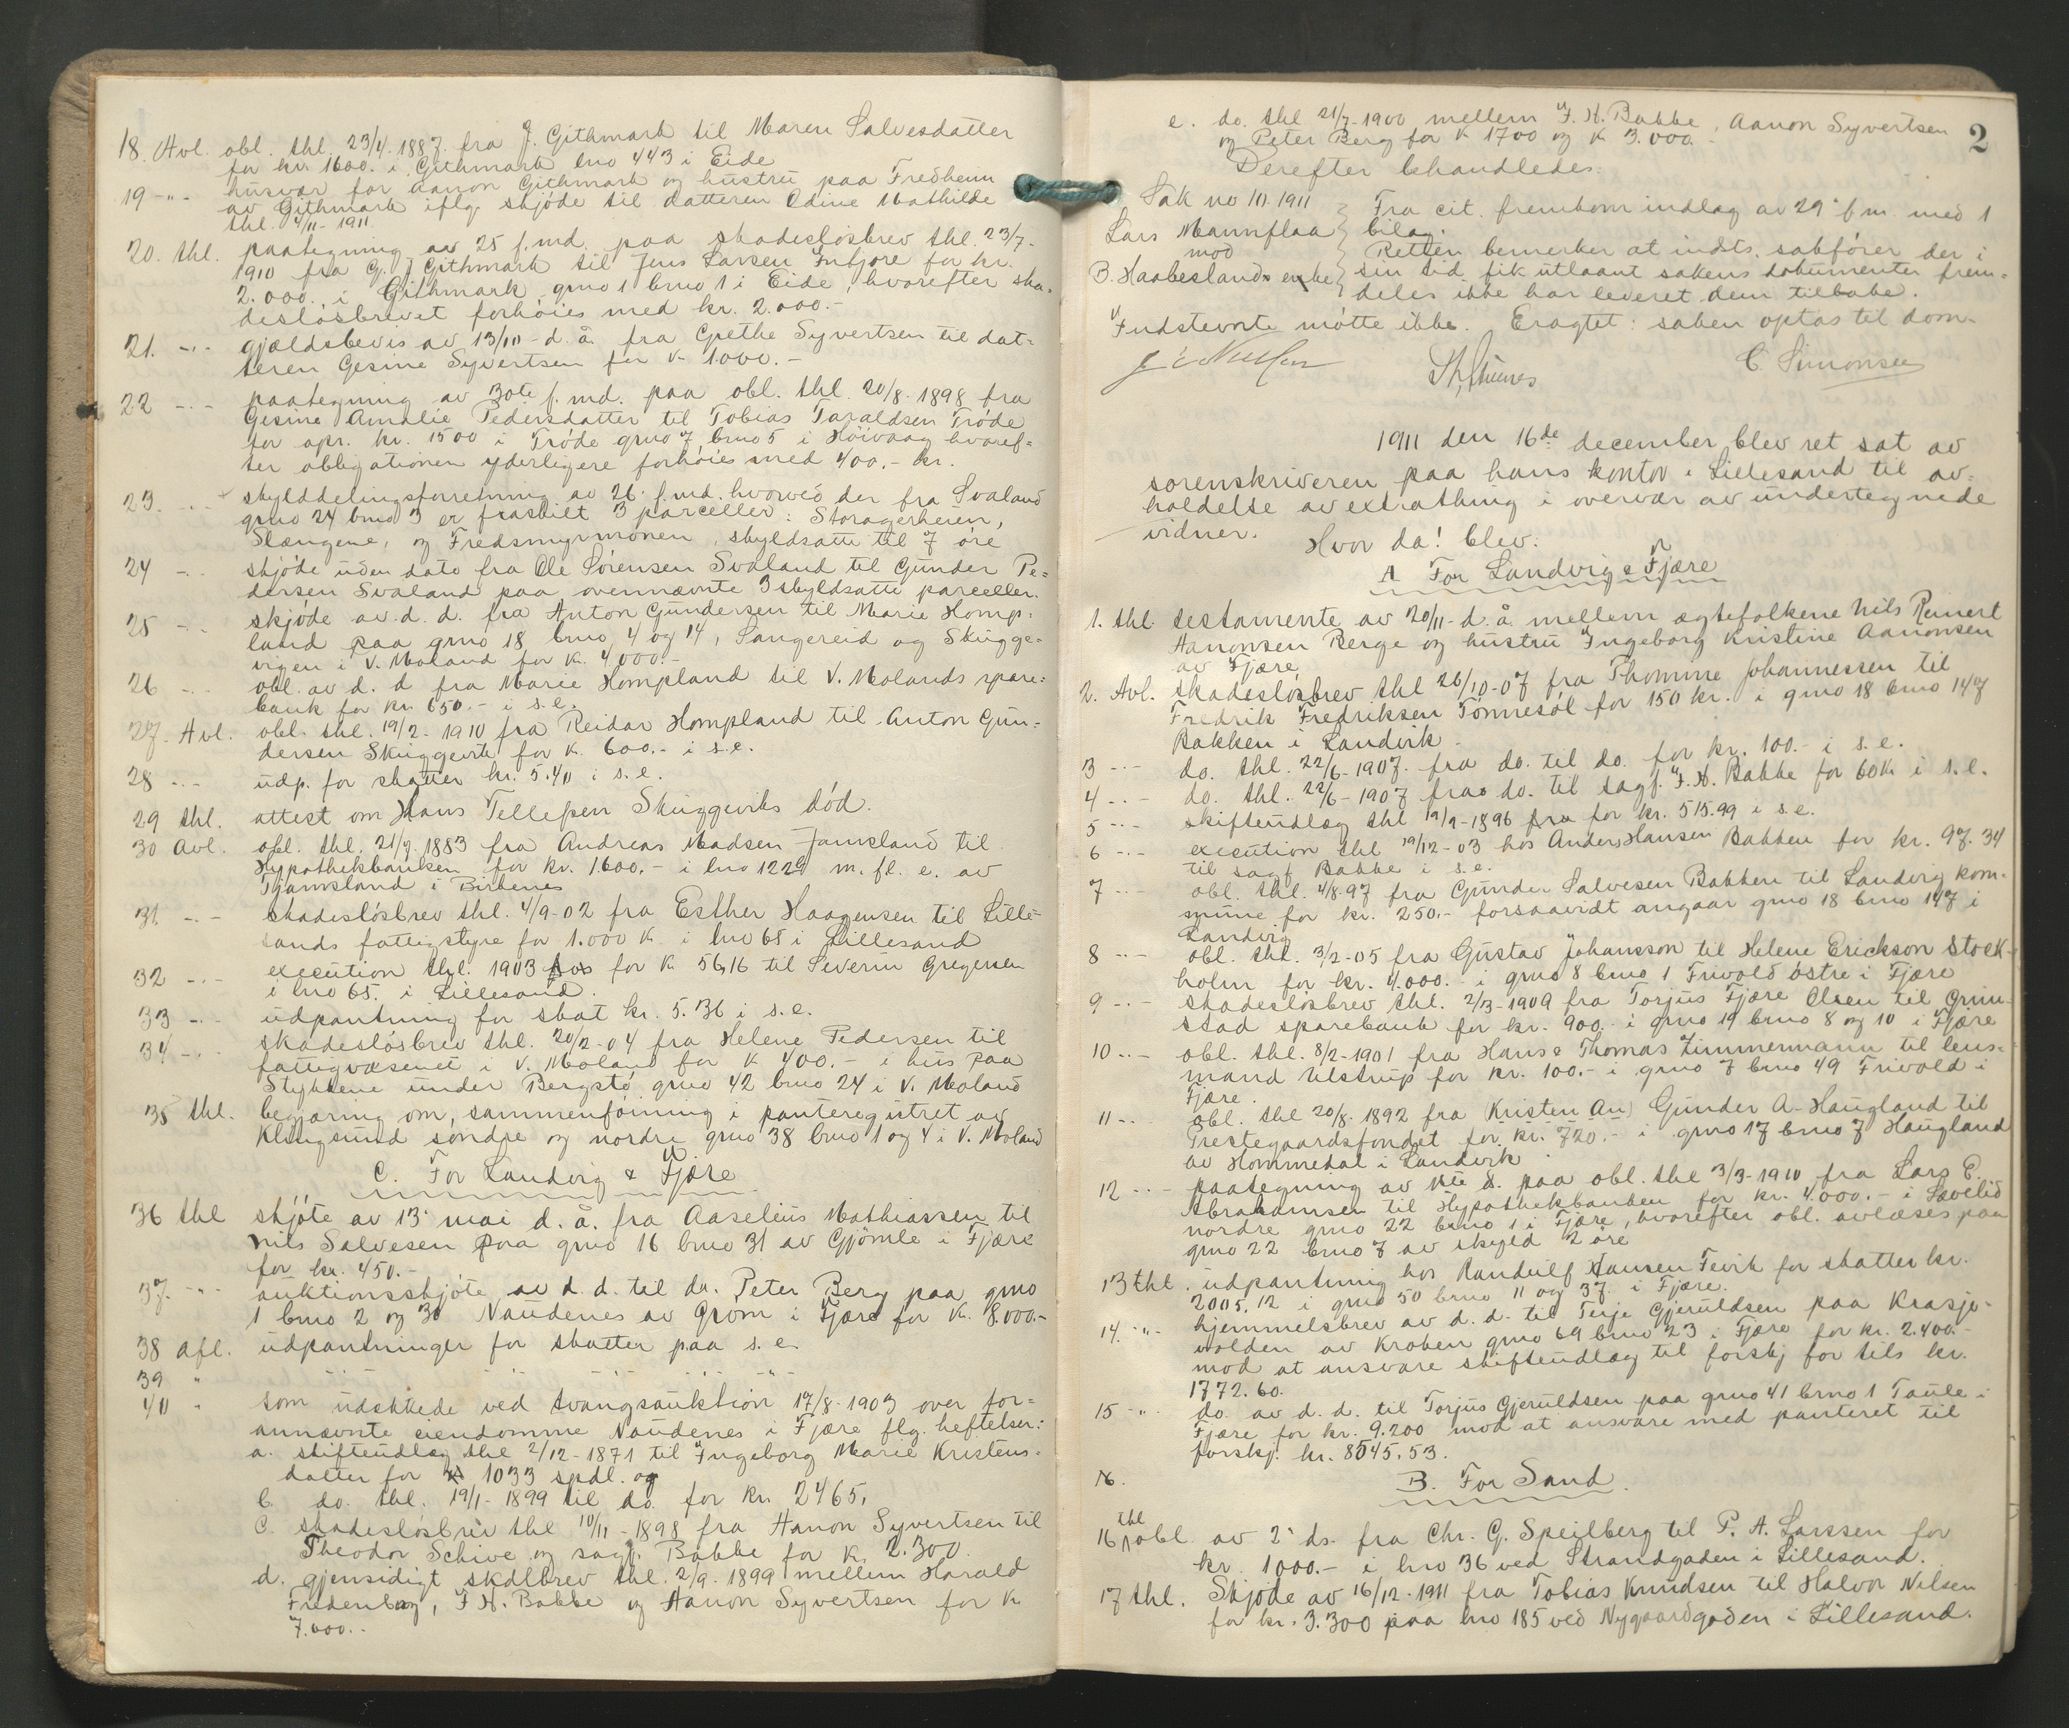 18. Avl. obl. thl. 23/4. 1887. fra J. Githmark til Maren Salvesdatter
for kr. 1600. i Githmark lno 443 i Eide
19 -"- husvær for Aanon Githmark og hustru paa Fredheim
av Githmark iflg. skjøde til datteren Odine Mathilde
thl. 4/11-1911.
20. thl. paategning av 25 f.md. paa skadesløsbrev thl. 23/7-
1910 fra G. J. Githmark til Jens Larsen Indjore for kr.
2.000., i Githmark grno 1 brno 1 i Eide, hvorefter ska-
desløsbrevet forhøies med kr. 2.000.-
21. -"- gjældsbevis av 13/10- d. å. fra Grethe Syvertsen til dat-
teren Gesine Syvertsen for k. 1000.-
22 -"- paategning av 30te f.md. paa obl. thl. 20/8. 1898 fra
Gesine Amalie Pedersdatter til Tobias Taraldsen Trøde
for opr. kr. 1500 i Trøde grno 7 brno 5 i Høivaag hvoref-
ter obligationen yderligere forhøies med 400.- kr.
23. -"- skylddelingsforretning av 26. f.md. hvorved der fra Svaland
grno 24 brno 3 er fraskilt 3 parceller: Storagerheien,
Slængene, og Fredsmyrmonen, skyldsatte til 7 øre
24 - skjøde uden dato fra Ole Sørensen Svaland til Gunder Pe-
dersen Svaland paa ovennævnte 3 skyldsatte parceller.
25 -"- skjøde av d. d. fra Anton Gundersen til Marie Homp-
land paa grno 18 brno 4 og 14, Sangereid og Skugge-
vigen i V. Moland for K. 4000.-
26 -"- obl. av d. d fra Marie Hompland til V. Molands spare-
bank for kr. 650.- i s.e.
27. Avl. obl. thl. 19/2. 1910 fra Reidar Hompland til Anton Gun-
dersen Skuggevik for k. 600.- i s.e.
28 -"- udp. for skatter kr. 5.40 i s.e.
29 thl. attest om Hans Tellefsen Skuggeviks død.
30 avl. obl. thl. 21/7. 1883 fra Andreas Madsen Jamsland til
Hypothekbanken for kr. 1600.- i lno 122d m. fl. e. av
Tjamsland i Birkenes
31. -"- skadesløsbrev thl. 4/9-02 fra Esther Haagensen til Lille-
sands fattigstyre for 1.000 K. i lno 65 i Lillesand
32 -"- execution thl. 1903 hos for K 56,16 til Severin Gregersen
i lno 65. i Lillesand.
33 -"- udpantning for skat kr. 5.36 i s.e.
34 -"- skadesløsbrev thl. 20/2-04 fra Helene Pedersen til
fattigvæsenet i V. Moland for K 400.- i hus paa
Stykkene under Bergstø grno 42 brno 24 i V. Moland
35 thl. begjæring om, sammenføining i panteregistret av
Klingsund søndre og nordre grno 38 brno 1 og 4 i V. Moland
C. For Landvig & Fjære
36 thl skjøte av 13. mai d. å. fra Aaselius Mathiassen til
Nils Salvesen paa grno 16 brno 31 av Gjømle i Fjære
for kr. 450.-
37. -"- auktionsskjøte av d. d. til do. Peter Berg paa grno
1 brno 2 og 30 Naudenes av Grom i Fjære for K. 8.000.-
38 afl. udpantninger for skatter paa s.e.
39 "
40 " som udslettede ved tvangsauktion 17/8-1903 over for-
annævnte eiendomme Naudenes i Fjære flg. heftelser:
a. skifteudlæg thl 2/12-1871 til Ingeborg Marie Kristens-
datter for 1033 spdl. og
b. do. thl. 19/1-1899 til do. for kr. 2465,
c. skadesløsbrev thl 10/11-1898 fra Aanon Syvertsen til
Theodor Schive og sagf. Bakke for k. 2.300.
d. gjensidigt skdlbrev thl. 2/9. 1899 mellem Harald
Fredenborg, J. H. Bakke og Aanon Syvertsen for K
7.000.-
e. do. thl 21/7-1900 mellem J. H. Bakke, Aanon Syvertsen
og Peter Berg for K 1700 og K 3.000.-
2
Derefter behandledes:
Sak no 10. 1911
Lars Mannflaa
mod
B. Haabeslands enke
Fra cit. fremkom indlæg av 29. f.m. med 1
bilag.
Retten bemerker at indst. sakfører der i
sin tid fik utlaant sakens dokumenter frem-
deles ikke har leveret dem tilbake.
Indstevnte møtte ikke. Eragtet: saken optas til dom.
C. Simonsen
1911 den 16de december blev ret sat av
sorenskriveren paa hans kontor i Lillesand til av-
holdelse av extrathing i overvær av undertegnede
vidner.
Hvor da! blev:
A For Landvig & Fjære
1. thl. testamente av 20/11- d. å. mellem ægtefolkene Nils Reinert
Aanonsen Berge og hustru Ingeborg Kristine Aanonsen
av Fjære
2. Avl. skadesløsbrev thl 26/10-07 fra Thomine Johannessen til
Fredrik Fredriksen Tønnesøl for 150 kr. i grno 18 brno 147
Bakken i Landvik
3 -"- do. thl. 22/6-1907. fra do. til do. for kr. 100.- i s.e.
4 -"- do. thl. 22/6-1907 fra do. til sagf. J. H. Bakke for 60 K i s.e.
5 -"- skifteudlæg thl 19/9-1896 fra for kr. 515.99 i s.e.
6 -"- execution thl 19/12-03 hos Anders Hansen Bakken for kr. 97.34
til sagf Bakke i s.e.
7 -"- obl. thl. 4/8-97 fra Gunder Salvesen Bakken til Landvig kom-
mune for kr. 250.- forsaavidt angaar grno 18 brno 147 i
Landvig
8 -"- obl. thl. 3/2-05 fra Gustav Johansson til Helene Erickson Stock-
holm for kr. 4.000.- i grno 8 brno 1 Frivold østre i Fjære
9 -"- skadesløsbrev thl. 2/3-1909 fra Torjus Fjære Olsen til Grim-
stad sparebank for kr. 900.- i grno 19 brno 8 og 10 i Fjære
10 -"- obl. thl. 8/2-1901 fra Hans & Thomas Zimmermann til lens-
mand Ulstrup for kr. 100.- i grno 7 brno 49 Frivold i
Fjære.
11 -"- obl. thl 20/8. 1892 fra Kristen An) Gunder A. Haugland til
Prestegaardsfondet for kr. 720.- i grno 17 brno 7 Haugland
av Hommedal i Landvik
12 -"- paategning av d. paa obl. thl 3/3-1910 fra Lars E.
Abrahamsen til Hypothekbanken for kr. 4.000.- i Sævelid
nordre grno 22 brno 1 i Fjære, hvorefter obl. avlæses paa
grno 22 brno 7 av skyld 2 øre
13 thl. udpantning hos Randulf Hansen Fevik for skatter kr.
2005.12 i grno 50 brno 11 og 37. i Fjære.
14. -"- hjemmelsbrev av d. d. til Terje Gjeruldsen paa Krasje-
volden av Kroken grno 69 brno 23 i Fjære for kr. 2.400.-
mod at ansvare skifteudlæg til forskj for tils kr.
1772.60.
15 -"- do. av d. d. til Torjus Gjeruldsen paa grno 41 brno 1 Taule i
Fjære for kr. 9.200 mod at ansvare med panteret til
forskj. kr. 8545.53.
16.
B. For Sand.
16 thl obl. av 2. ds. fra Chr. G. Speilberg til P. A. Larssen for
kr. 1000.- i lno 36 ved Strandgaden i Lillesand.
17 thl. Skjøde av 16/12-1911 fra Tobias Knudsen til Halvor Nilsen
for kr. 3.300 paa lno 185 ved Nygaardgaden i Lillesand.